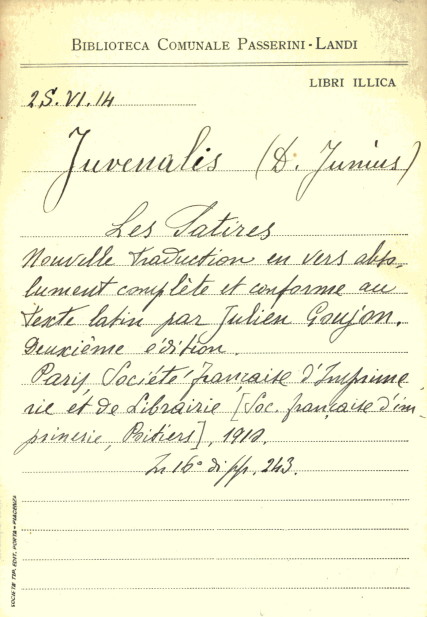 BIBLIOTECA COMUNALE PASSERINI-LANDI
LIBRI ILLICA
2S.VI.14
Juvenalis (D. Junius)
Les Satires
Nouvelle traduction en vers abso-
lument complète et conforme au
texte latin par Julien Goujon.
Deuxième édition.
Paris, Société française d'Imprime
rie et de Librairie [Soc. française d'im-
primerie, Poitiers], 1912.
In 16° di pp. 243.
SOCIETÀ TIP. EDIT. PORTA - PIACENZA